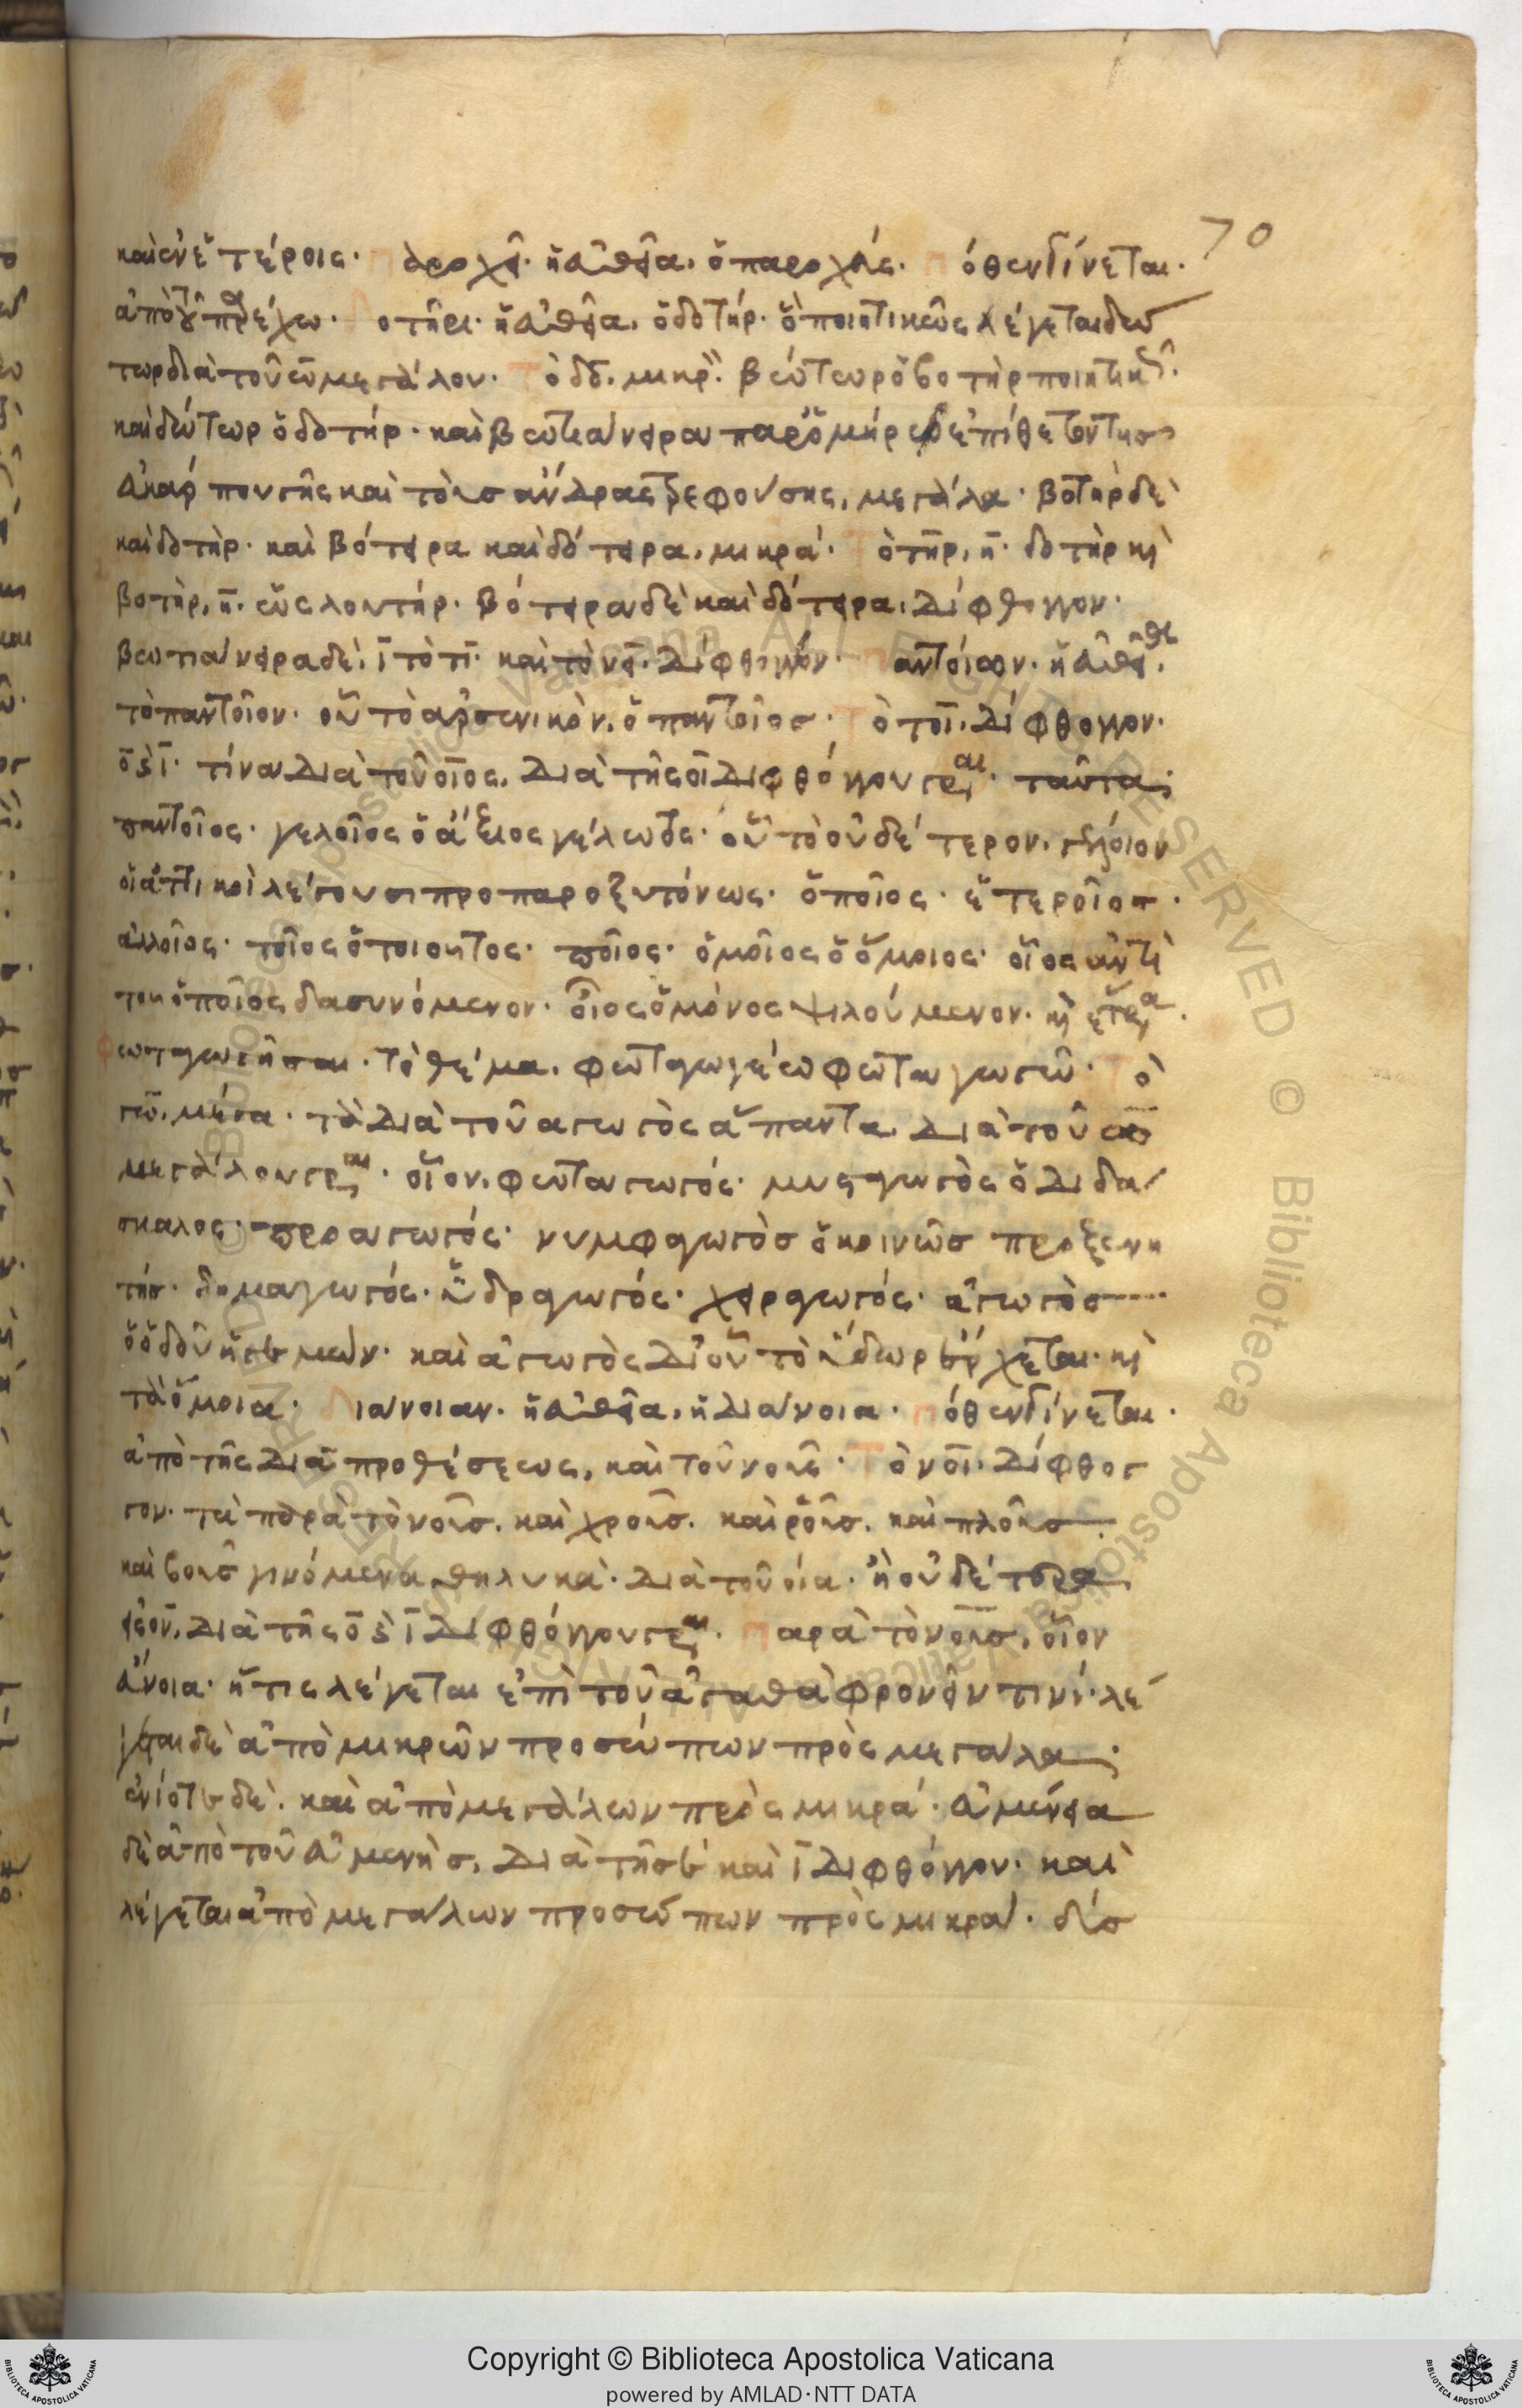 70
καὶ ἐν ἑτέροις. παροχεῖ. ἡ εὐθεῖα, ὁ παροχεύς. πόθεν γίνεται.
ἀπὸ τοῦ παρέχω. δοτῆρι. ἡ εὐθεῖα, ὁ δοτήρ. ὁ ποιητικῶς λέγεται δώ
τωρ διὰ τοῦ ω μεγάλου. τὸ δο, μικρόν. βώτωρ ὁ βοτὴρ ποιητικῶς.
καὶ δώτωρ ὁ δοτήρ. καὶ βωτιάνειρα παρ' ὁμήρῳ ἐπίθετον τῆς
εὐκάρπου γῆς καὶ τοὺς ἄνδρας τρεφούσης, μεγάλα. βοτὴρ δὲ
καὶ δοτήρ. καὶ βότειρα καὶ δότειρα, μικρά. τὸ τηρ, η. δοτὴρ καὶ
βοτὴρ, η. ὡς λουτήρ. βότειρα δὲ καὶ δότειρα, δίφθογγον.
βωτιάνειρα δὲ, ι τὸ τι. καὶ τὸ νει. δίφθογγον. παντοίων. ἡ εὐθεῖα
τὸ παντοῖον. οὗ τὸ ἀρσενικὸν, ὁ παντοῖος. τὸ τοι, δίφθογγον.
ο καὶ ι. τίνα διὰ τοῦ οιος, διὰ τῆς οι διφθόγγου γράφεται. ταῦτα.
παντοῖος. γελοῖος ὁ ἄξιος γέλωτος. οὗ τὸ οὐδέτερον, γελοῖον
οἱ ἀττικοὶ λέγουσι προπαροξυτόνως. ὁποῖος. ἑτεροῖος.
ἀλλοῖος. τοῖος ὁ τοιοῦτος. ποῖος. ὁμοῖος ὁ ὅμοιος. οἷος ἀντὶ
τοῦ ὁποῖος δασυνόμενον. οἶος ὁ μόνος ψιλούμενον. καὶ ἕτερα.
φωταγωγῆσαι. τὸ θέμα, φωταγωγέω φωταγωγῶ. τὸ
γω, μέγα. τὰ διὰ τοῦ αγωγος ἅπαντα, διὰ τοῦ ω
μεγάλου γράφεται. οἷον, φωταγωγός. μυσταγωγὸς ὁ διδά
σκαλος. προαγωγός. νυμφαγωγὸς ὁ κοινῶς προξενη
τής. δημαγωγός. ὑδραγωγός. χειραγωγός. ἀγωγὸς
ὁ ὁδοῦ ἡγεμών. καὶ ἀγωγὸς δι' οὗ τὸ ὕδωρ ἔρχεται. καὶ
τὰ ὅμοια. διάνοιαν. ἡ εὐθεῖα, ἡ διάνοια. πόθεν γίνεται.
ἀπὸ τῆς διὰ προθέσεως, καὶ τοῦ νοῦς. τὸ νοι, δίφθογ
γον. τὰ παρὰ τὸ νοῦς, καὶ χροῦς, καὶ ῥοῦς, καὶ πλοῦς
καὶ βοῦς γινόμενα θηλυκὰ, διὰ τοῦ οια. ἢ οὐδέτερα
διὰ τῆς ο καὶ ι διφθόγγου γράφεται. παρὰ τὸ νοῦς, οἷον
εὔνοια. ἥτις λέγεται ἐπὶ τοῦ ἀγαθὰ φρονεῖν τινί. λέ
γεται δὲ ἀπὸ μικρῶν προσώπων πρὸς μεγάλα.
ἐνίοτε δὲ, καὶ ἀπὸ μεγάλων πρὸς μικρά. εὐμένεια
δὲ ἀπὸ τοῦ εὐμενὴς, διὰ τῆς ε καὶ ι διφθόγγου. καὶ
λέγεται ἀπὸ μεγάλων προσώπων πρὸς μικρά. δύσ
Copyright © Biblioteca Apostolica Vaticana
powered by AMLAD·NTT DATA